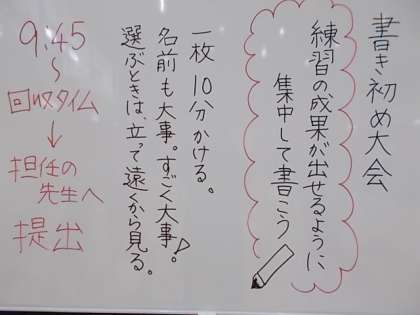 書き初め大会
練習の成果が出せるように
集中して書こう
一枚10分かける。
名前も大事。すごく大事!。
選ぶときは、立って遠くから見る。
9:45
〜
回収タイム
↓
担任の
先生へ
提出